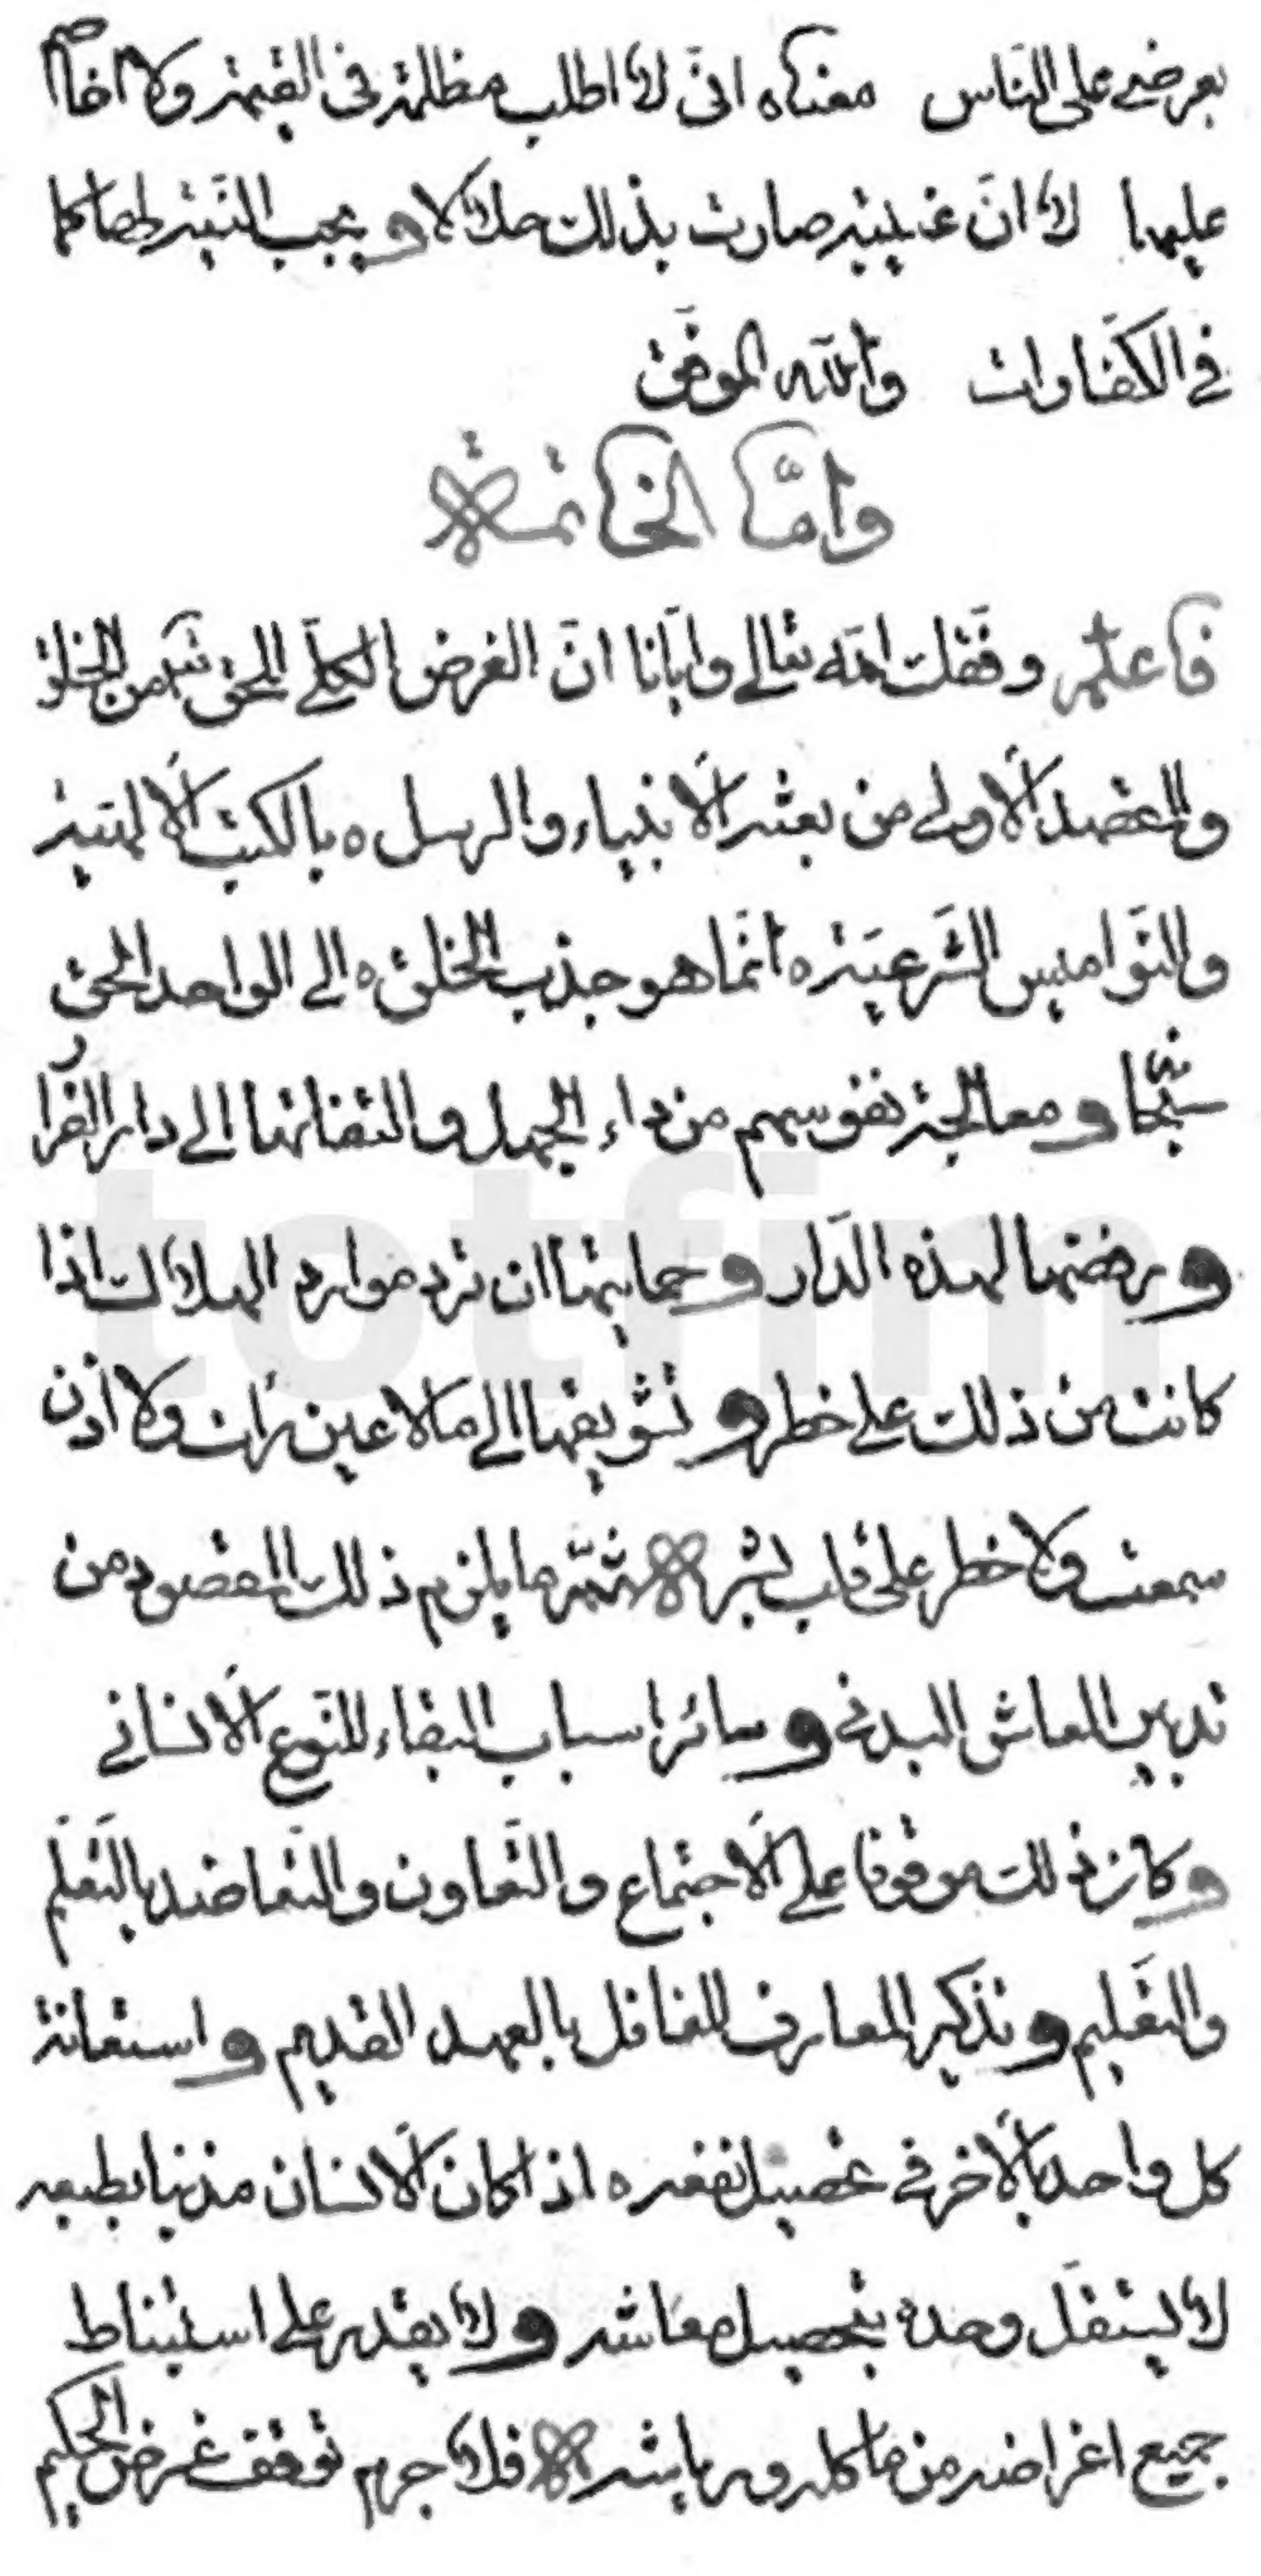 بعرضي على الناس معناه انّى لا اطلب مظلمة فى القيمة ولا اخاصم
عليها لا انّ غيبته صارت بذلك حلالا ويجب النيّة لها كما
في الكفّارات والله الموفّق
وامّا الخاتمة
فاعلم وفّقك الله تعالى وايّانا انّ الغرض الكلّي للحقّ تعـ من الخلق
والمقصد الأولى من بعثة الأنبياء والرسل ه بالكتب الألهيّة
والنّواميس الشّرعيّة ه انّما هو جذب الخلق ه الى الواحد الحقّ
سبحانه ومعالجة نفوسهم من داء الجهل والتفاتها الى دار القرار
ورفضها لهذه الدّار وحمايتها ان ترد موارد الهلاك اذا
كانت من ذلك على خطر وتشويقها الى ما لا عين رأت ولا أذن
سمعت ولا خطر على قلب بشر ثمّ ما يلزم ذلك المقصود من
تدبير المعاش البدنى وسائر اسباب البقاء للنّوع الأنسانى
وكان ذلك موقوفا على الأجتماع والتّعاون والتّعاضد بالتّعلّم
والتّعليم وتذكير المعارف للغافل بالعهد القديم واستعانة
كل واحد بالأخر في تحصيل نفعه ه اذا كان الأنسان مدنيا بطبعه
لا يستقلّ وحده بتحصيل معاشه ولا يقدر على استنباط
جميع اغراضه من ماكله ورياشه فلا جرم توقف غرض الحكيم